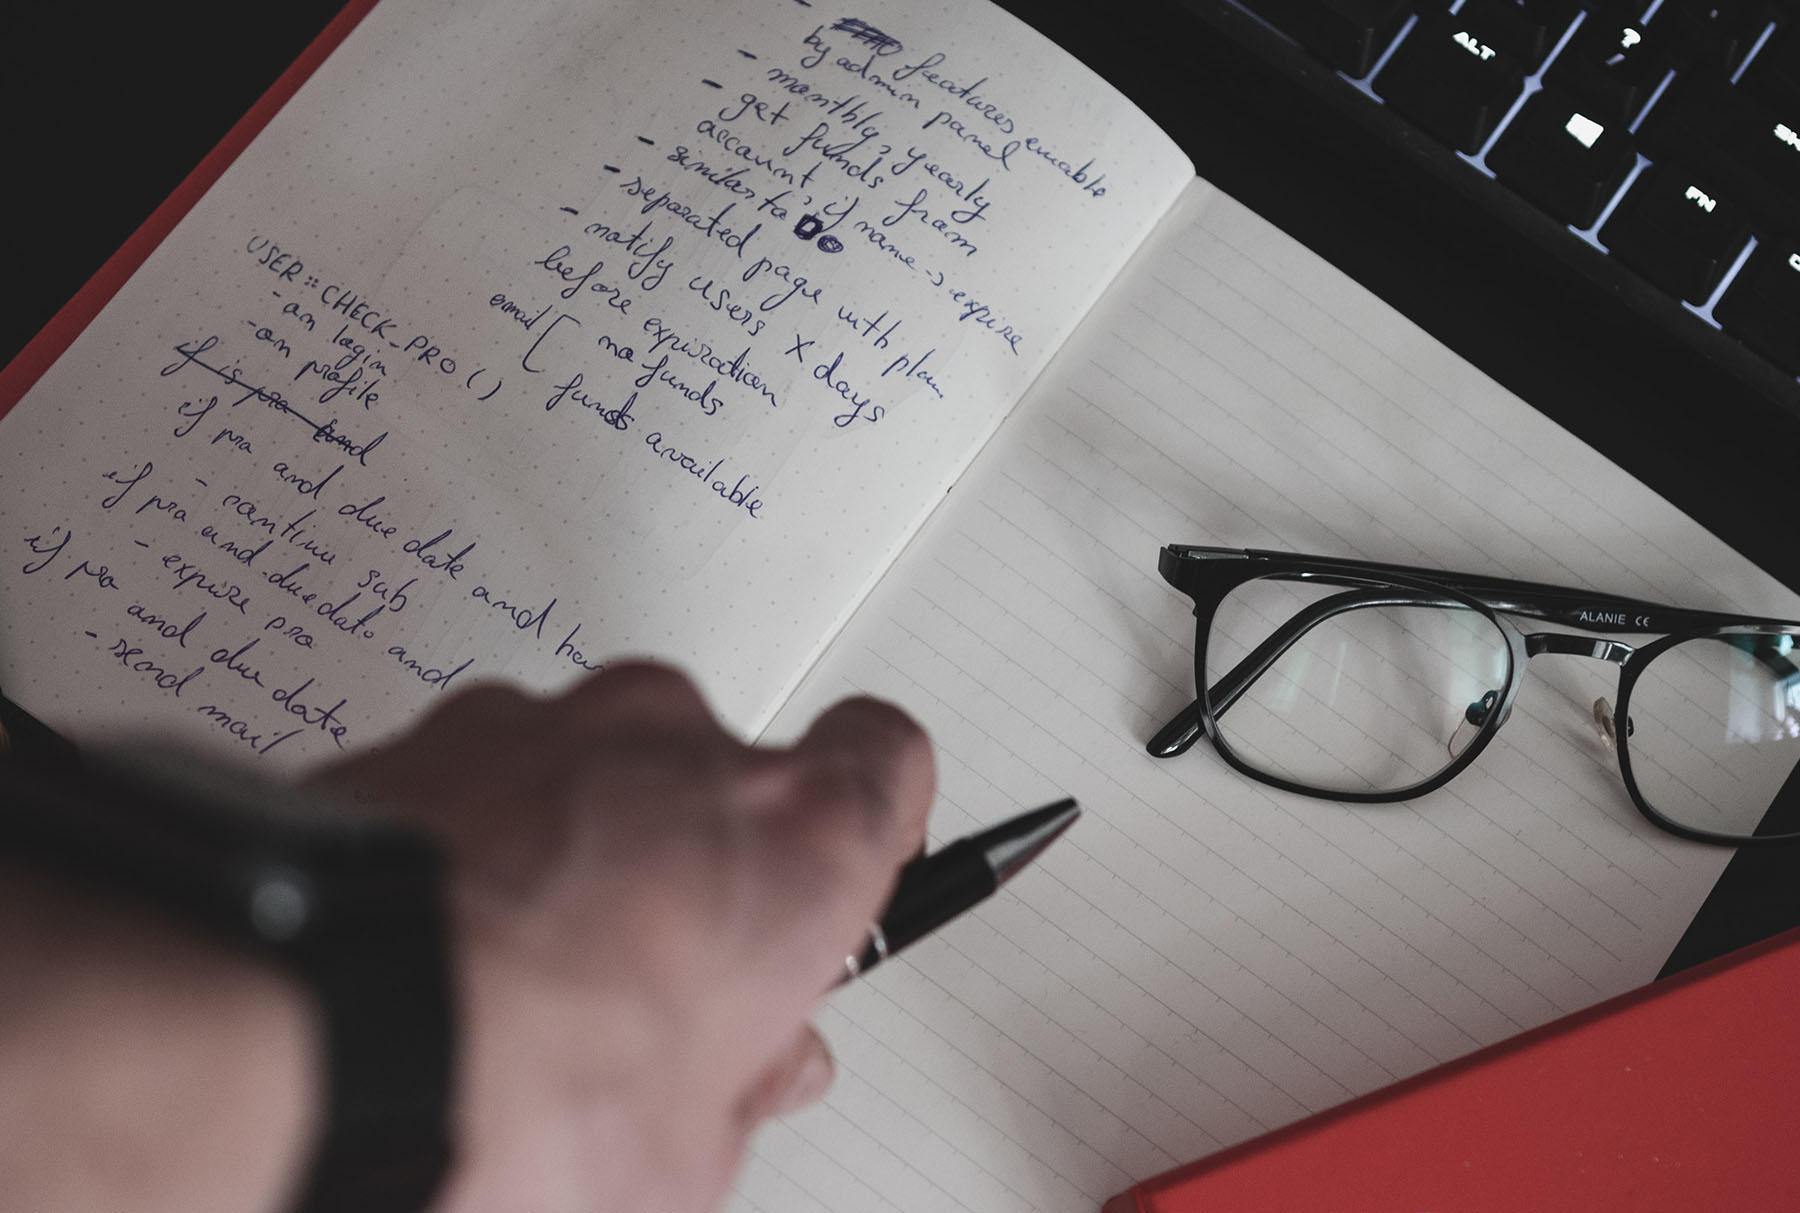 - features enable
by admin panel
- monthly, yearly
- get funds from
account, if name -> expire
- similar to DO
- separated page with plan
- notify users X days
before expiration
email [ no funds
funds available
USER::CHECK_PRO()
- on login
- on profile
if is pro and
if pro and due date and
- continu sub
if pro and due date and
- expire pro
if pro and due date
- send mail
ALT
?
FN
ALANIE CE